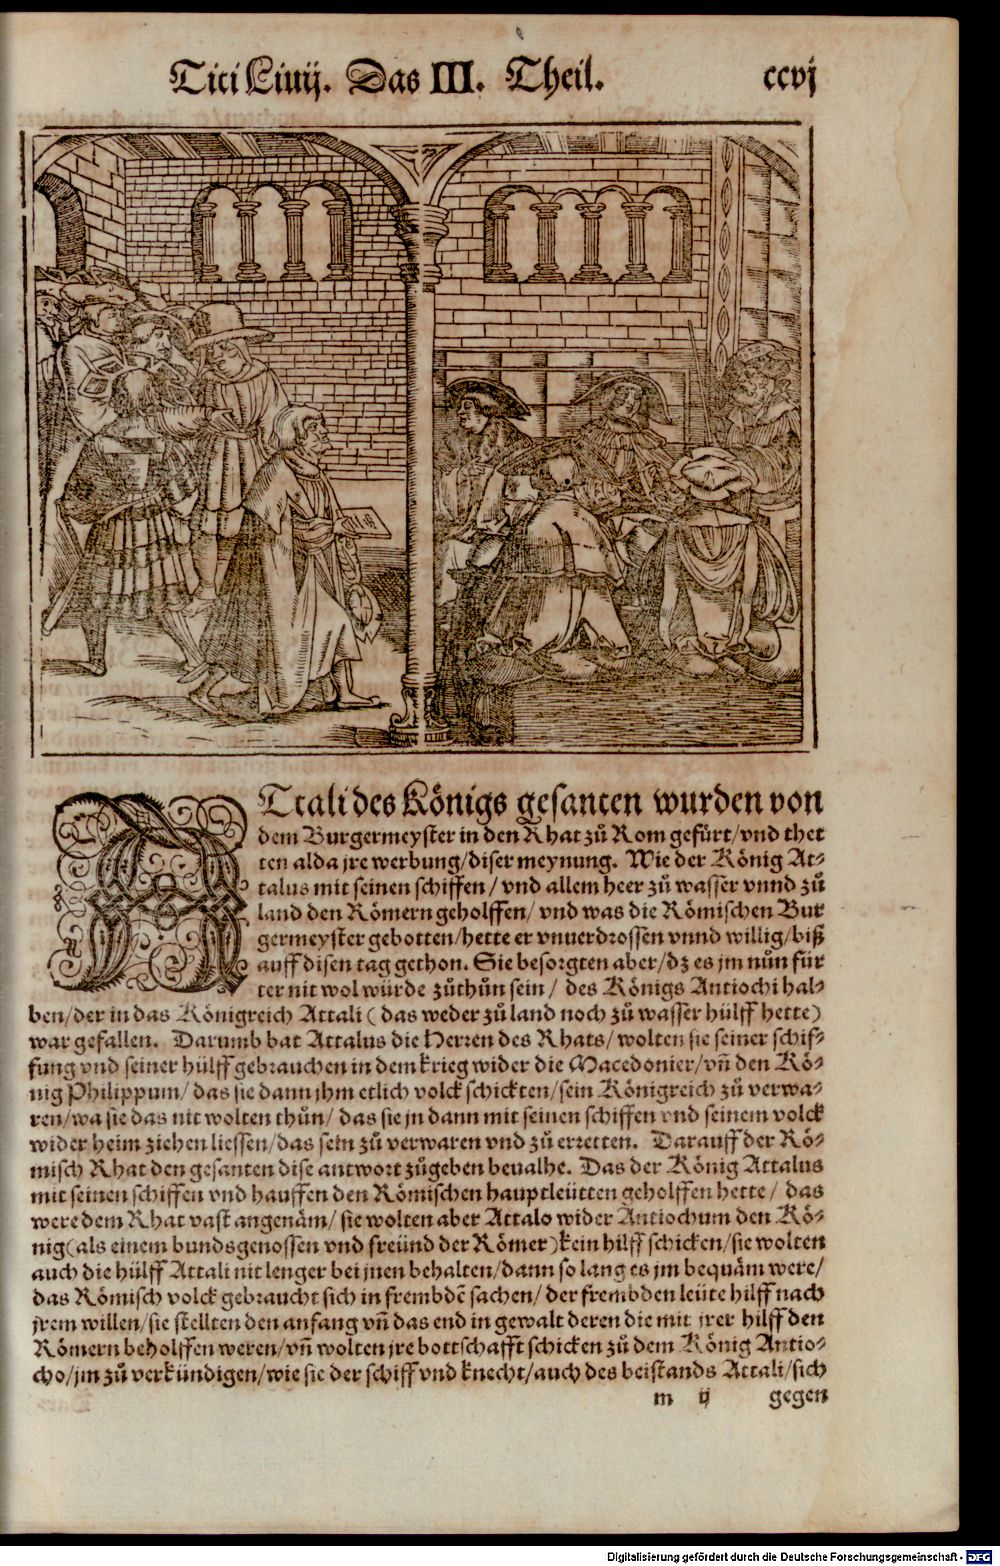 Titi Liuij. Das III. Theil. ccvj
ATtali des Königs gesanten wurden von
dem Burgermeyster in den Rhat zů Rom gefürt/vnd thet
ten alda jre werbung/diser meynung. Wie der König At⸗
talus mit seinen schiffen/vnd allem heer zů wasser vnnd zů
land den Römern geholffen/vnd was die Römischen Bur
germeyster gebotten/hette er vnuerdrossen vnnd willig/biß
auff disen tag gethon. Sie besorgten aber/dz es jm nůn für
ter nit wol würde zůthůn sein/ des Königs Antiochi hal⸗
ben/der in das Königreich Attali (das weder zů land noch zů wasser hülff hette)
war gefallen. Darumb bat Attalus die Herren des Rhats/wolten sie seiner schif⸗
fung vnd seiner hülff gebrauchen in dem krieg wider die Macedonier/vñ den Kö⸗
nig Philippum/das sie dann jhm etlich volck schickten/sein Königreich zů verwa⸗
ren/wa sie das nit wolten thůn/das sie jn dann mit seinen schiffen vnd seinem volck
wider heim ziehen liessen/das sein zů verwaren vnd zů erretten. Darauff der Rö⸗
misch Rhat den gesanten dise antwort zůgeben beualhe. Das der König Attalus
mit seinen schiffen vnd hauffen den Römischen hauptleütten geholffen hette/ das
were dem Rhat vast angenäm/sie wolten aber Attalo wider Antiochum den Kö⸗
nig(als einem bundsgenossen vnd freünd der Römer)kein hilff schicken/sie wolten
auch die hülff Attali nit lenger bei jnen behalten/dann so lang es jm bequäm were/
das Römisch volck gebraucht sich in frembdẽ sachen/der frembden leüte hilff nach
jrem willen/sie stellten den anfang vñ das end in gewalt deren die mit jrer hilff den
Römern beholffen weren/vñ wolten jre bottschafft schicken zů dem König Antio⸗
cho/jm zů verkündigen/wie sie der schiff vnd knecht/auch des beistands Attali/sich
m ij gegen
Digitalisierung gefördert durch die Deutsche Forschungsgemeinschaft - DFG